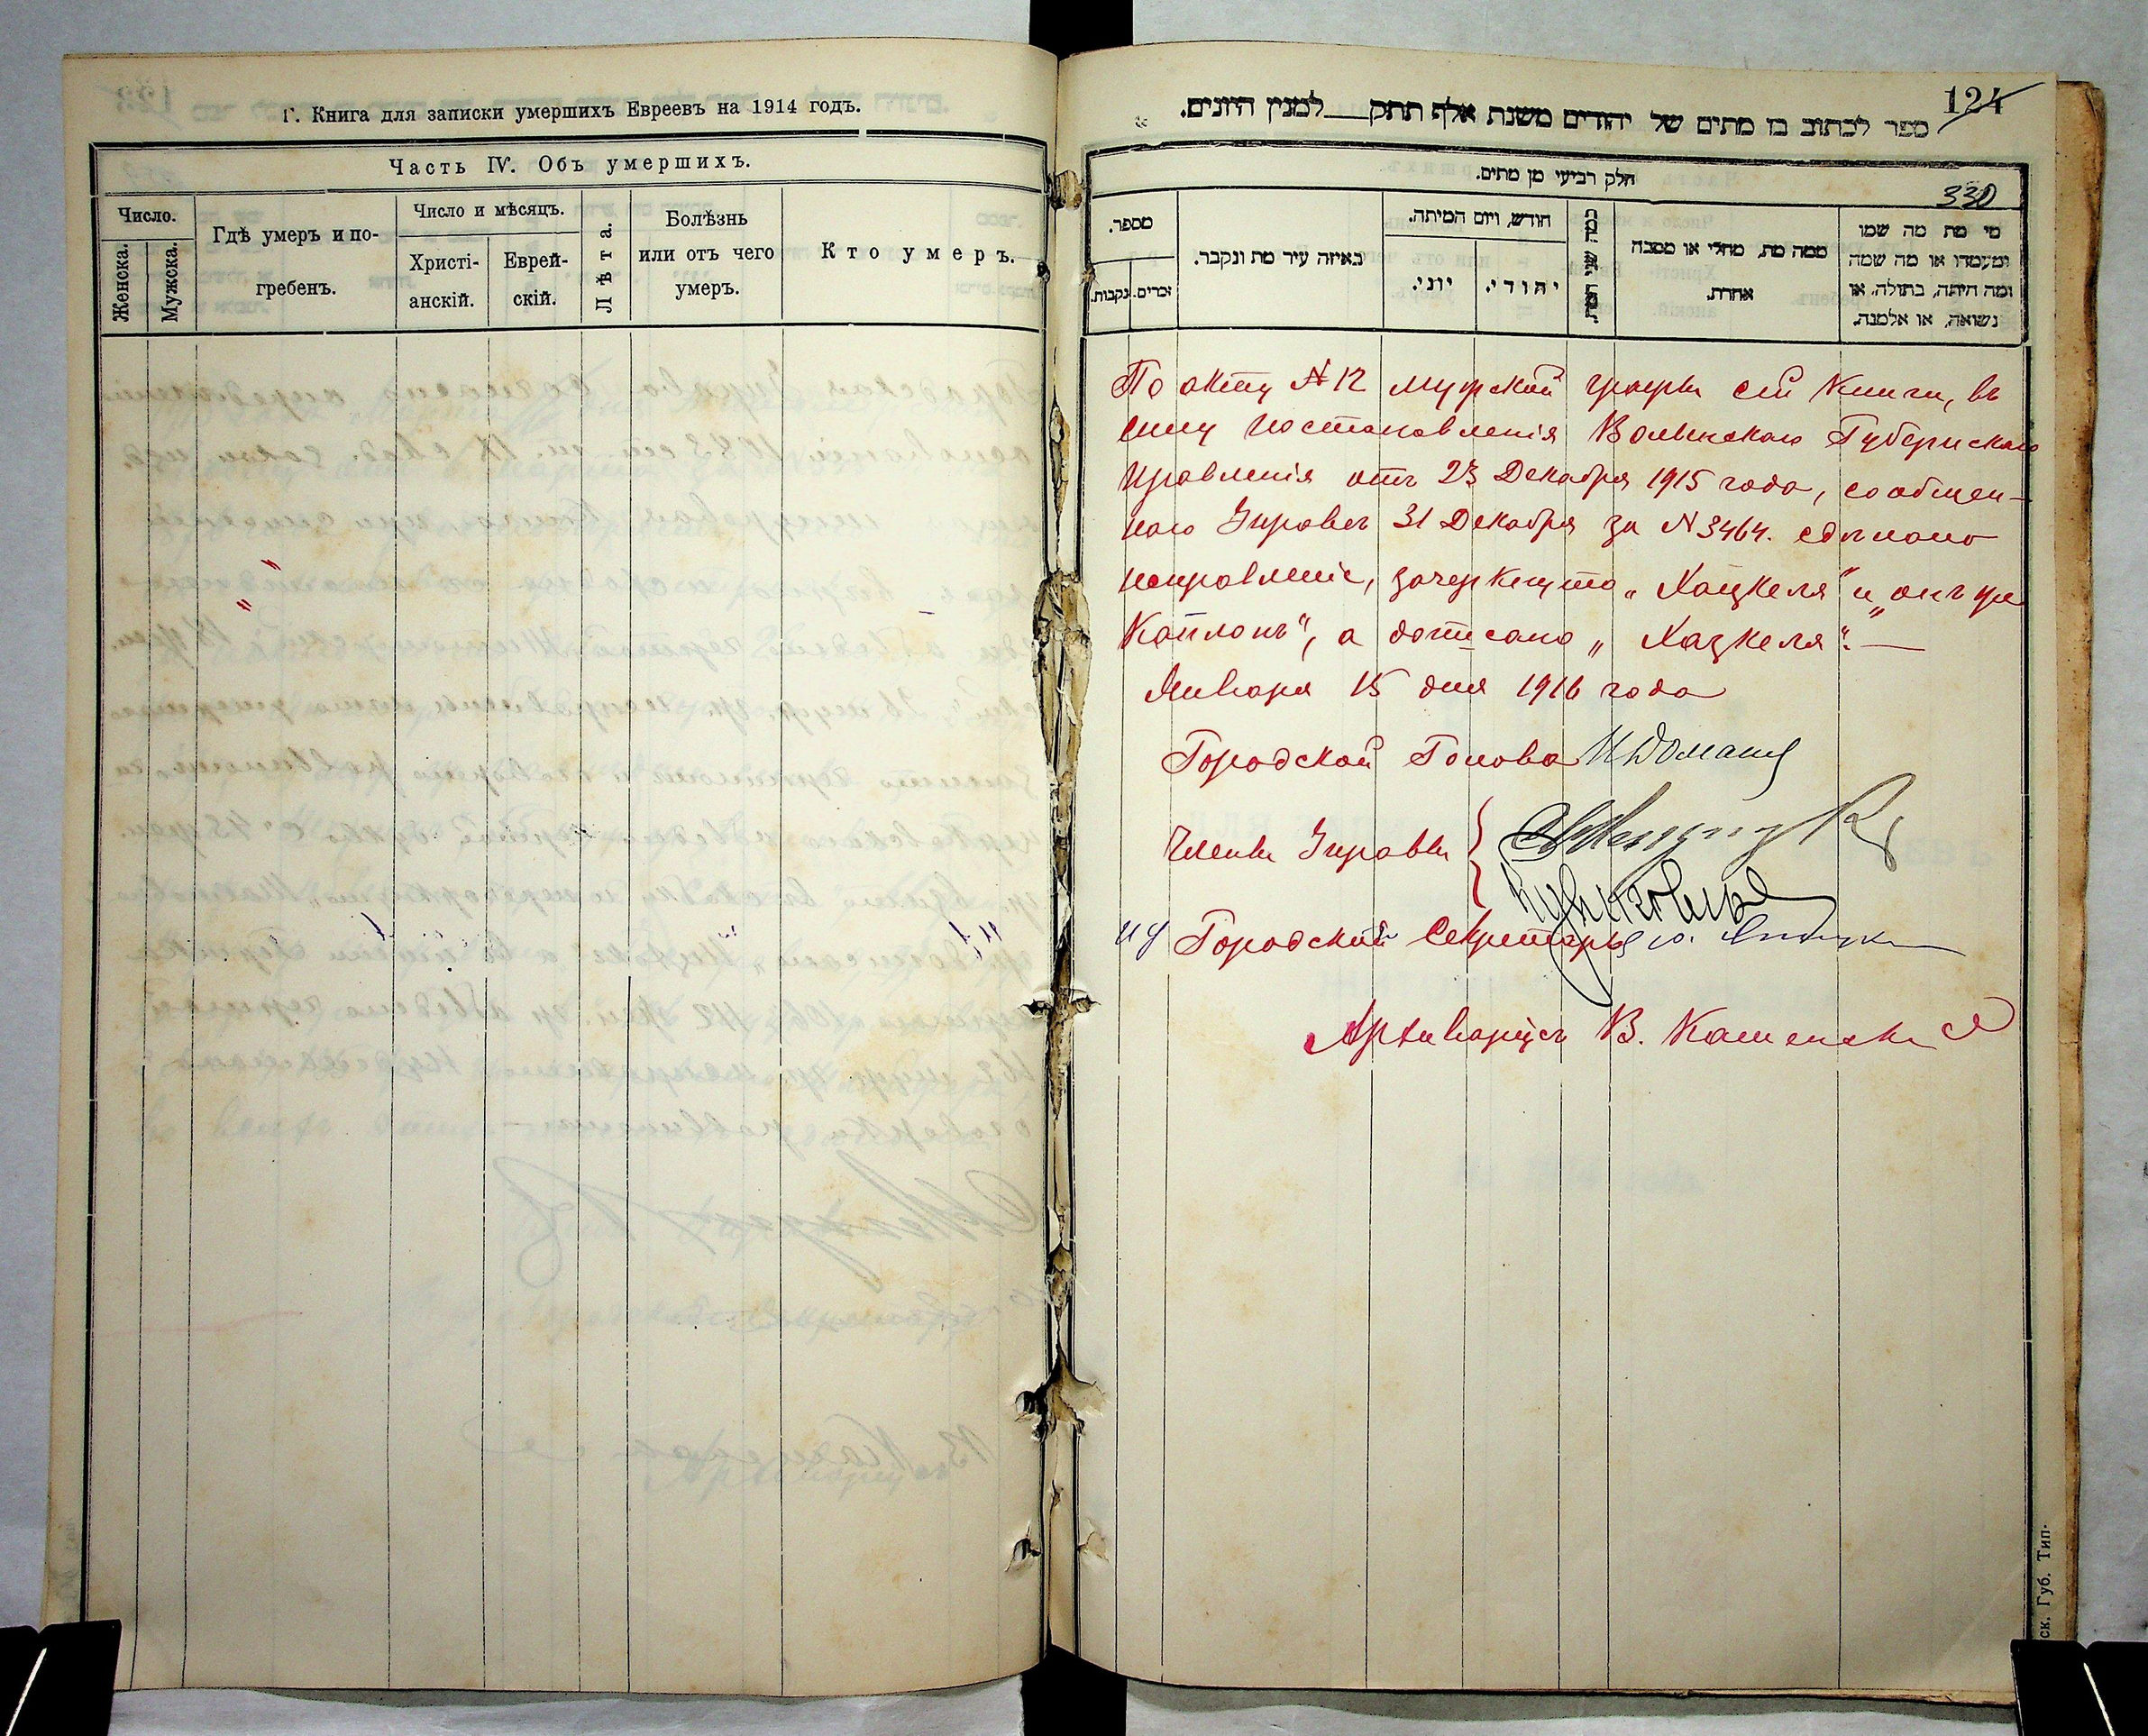 Г. Книга для записки умершихъ Евреевъ на 1914 годъ.
Часть IV. Объ умершихъ.
Число.
Женска.
Мужска.
Гдѣ умеръ и по-
гребенъ.
Число и мѣсяцъ.
Христі-
анскій.
Еврей-
скій.
Лѣта.
Болѣзнь
или отъ чего
умеръ.
Кто умеръ.
124
ספר לכתוב בו מתים של יהודים משנת אלף תתק למנין היונים.
חלק רביעי מן מתים.
330
מספר.
נקבות.
זכרים.
באיזה עיר מת ונקבר.
חודש, ויום המיתה.
יוני.
יהודי.
כמה שני המת.
ממה מת, מחלי או מסבה
אחרת.
מי מת מה שמו
ומעמדו או מה שמה
ומה היתה, בתולה, או
נשואה, או אלמנה.
По акту №12 мужской графы сей Книги, въ
силу постановленія Волынскаго Губернскаго
Правленія отъ 23 Декабря 1915 года, сообщен-
наго Управѣ 31 Декабря за №3464. сдѣлано
исправленіе, зачеркнуто „Хацкеля" и „онъ же
Каплонъ", а дописано „Хазкеля".—
Января 15 дня 1916 года
Городской Голова
Члены Управы
Городской Секретарь
Архиваріусъ В. Каменскій
ск. Губ. Тип-